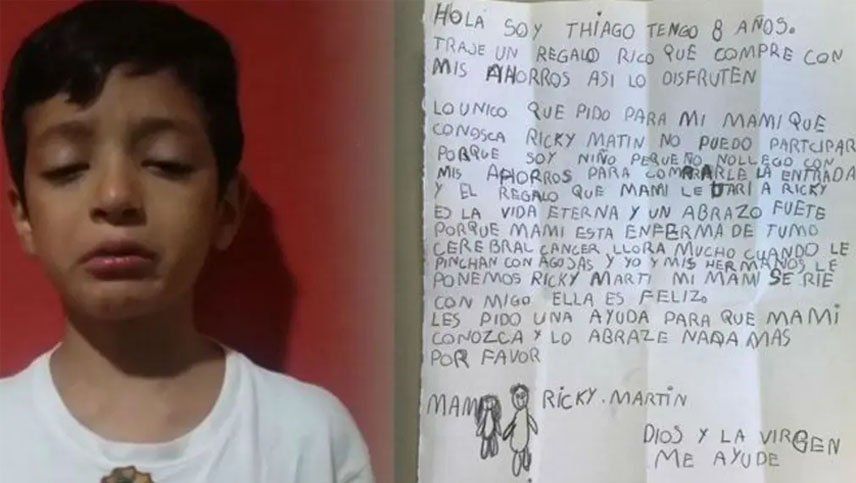 HOLA SOY THIAGO TENGO 8 AÑOS.
TRAJE UN REGALO RICO QUE COMPRE CON
MIS AHORROS ASI LO DISFRUTEN
LO UNICO QUE PIDO PARA MI MAMI QUE
CONOSCA RICKY MATIN NO PUEDO PARTCIPAR
PORQUE SOY NIÑO PEQUEÑO NOLLEGO CON
MIS AHORROS PARA COMPRARLE LA ENTRADA
Y EL REGALO QUE MAMI LE DARI A RICKY
ES LA VIDA ETERNA Y UN ABRAZO FUETE
PORQUE MAMI ESTA ENFERMA DE TUMO
CEREBRAL CANCER LLORA MUCHO CUANDO LE
PINCHAN CON AGOJAS Y YO Y MIS HERMANOS LE
PONEMOS RICKY MARTI MI MAMI SE RIE
CON MIGO ELLA ES FELIZ.
LES PIDO UNA AYUDA PARA QUE MAMI
CONOZCA Y LO ABRAZE NADA MAS
POR FAVOR
MAMI RICKY. MARTIN
DIOS Y LA VIRGEN
ME AYUDE